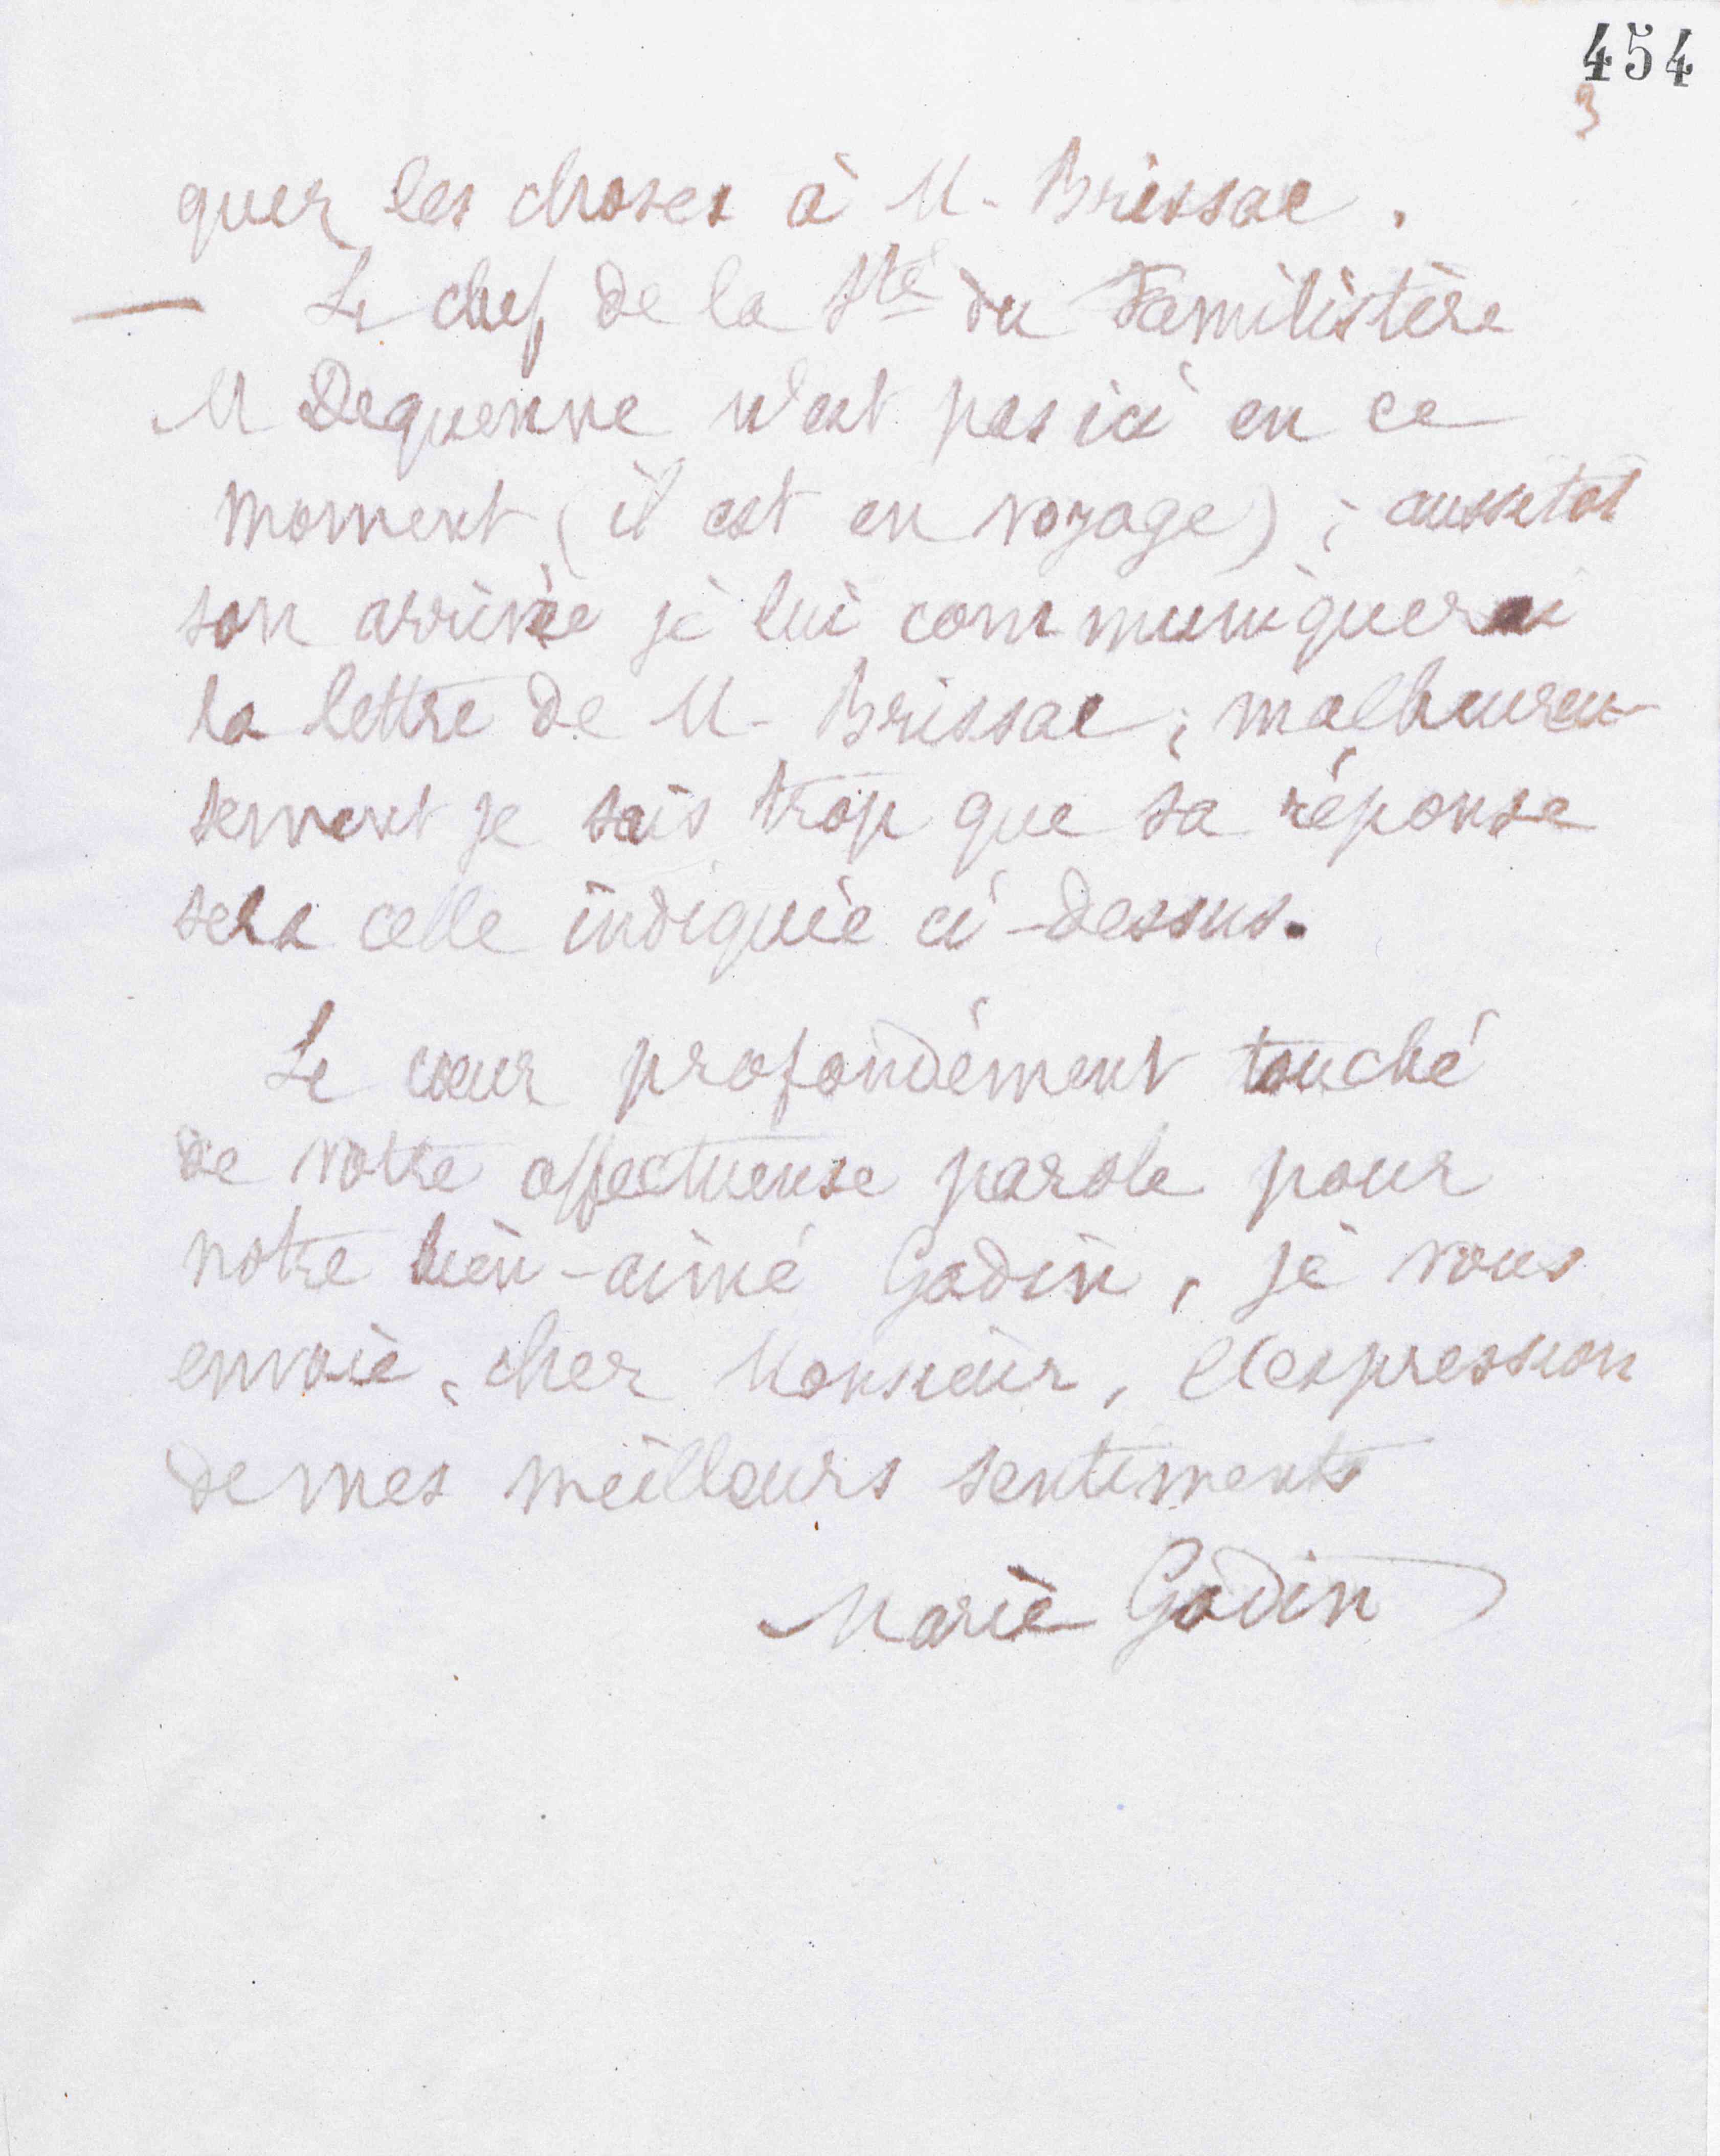 454
3
quer les choses à M. Brissac.
— Le chef de la Sté du Familistère
M Dequenne n'est pas ici en ce
moment (il est en voyage) ; aussitôt
son arrivée je lui communiquerai
la lettre de M. Brissac ; malheureu-
sement je sais trop que sa réponse
sera celle indiquée ci-dessus.
Le cœur profondément touché
de votre affectueuse parole pour
notre bien-aimé Godin, je vous
envoie, cher Monsieur, l'expression
de mes meilleurs sentiments
Marie Godin